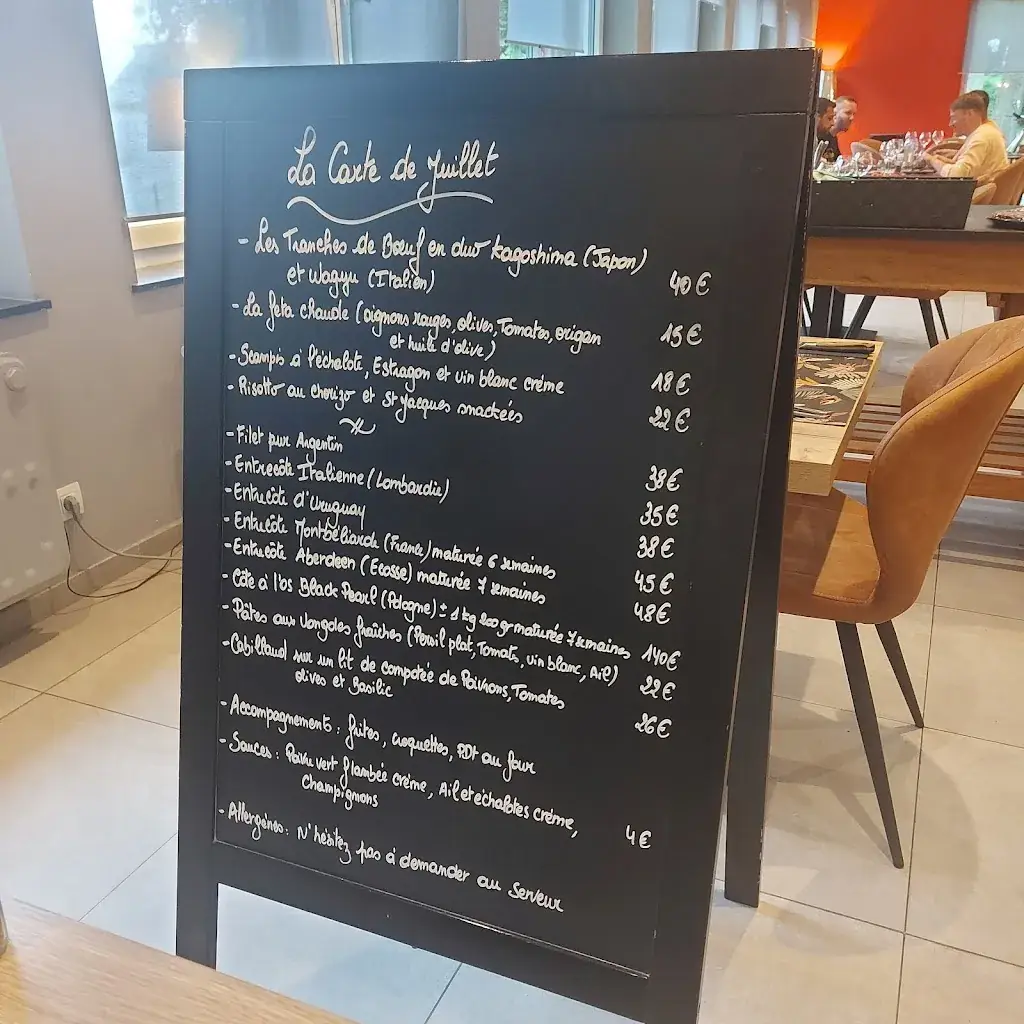 La Carte de Juillet
- Les Tranches de Bœuf en duo Kagoshima (Japon)
et Wagyu (Italien) 40 €
- La feta chaude (oignons rouges, olives, Tomates, origan 15 €
et huile d'olive)
- Scampis à l'échalote, Estragon et vin blanc crème 18 €
- Risotto au chorizo et St Jacques snackées 22 €
- Filet pur Argentin 38 €
- Entrecôte Italienne (Lombardie) 35 €
- Entrecôte d'Uruguay 38 €
- Entrecôte Montbéliarde (France) maturée 6 semaines 45 €
- Entrecôte Aberdeen (Ecosse) maturée 7 semaines 48 €
- Côte à l'os Black Pearl (Pologne) ± 1 kg 200 gr maturée 7 semaines 140 €
- Pâtes aux Vongoles fraîches (Persil plat, Tomate, vin blanc, Ail) 22 €
- Cabillaud sur un lit de compotée de Poivrons, Tomates 26 €
olives et Basilic
- Accompagnements : frites, croquettes, PDT au four
- Sauces : Poivre vert flambée crème, Ail et échalotes crème, 4 €
Champignons
- Allergènes : N'hésitez pas à demander au Serveur